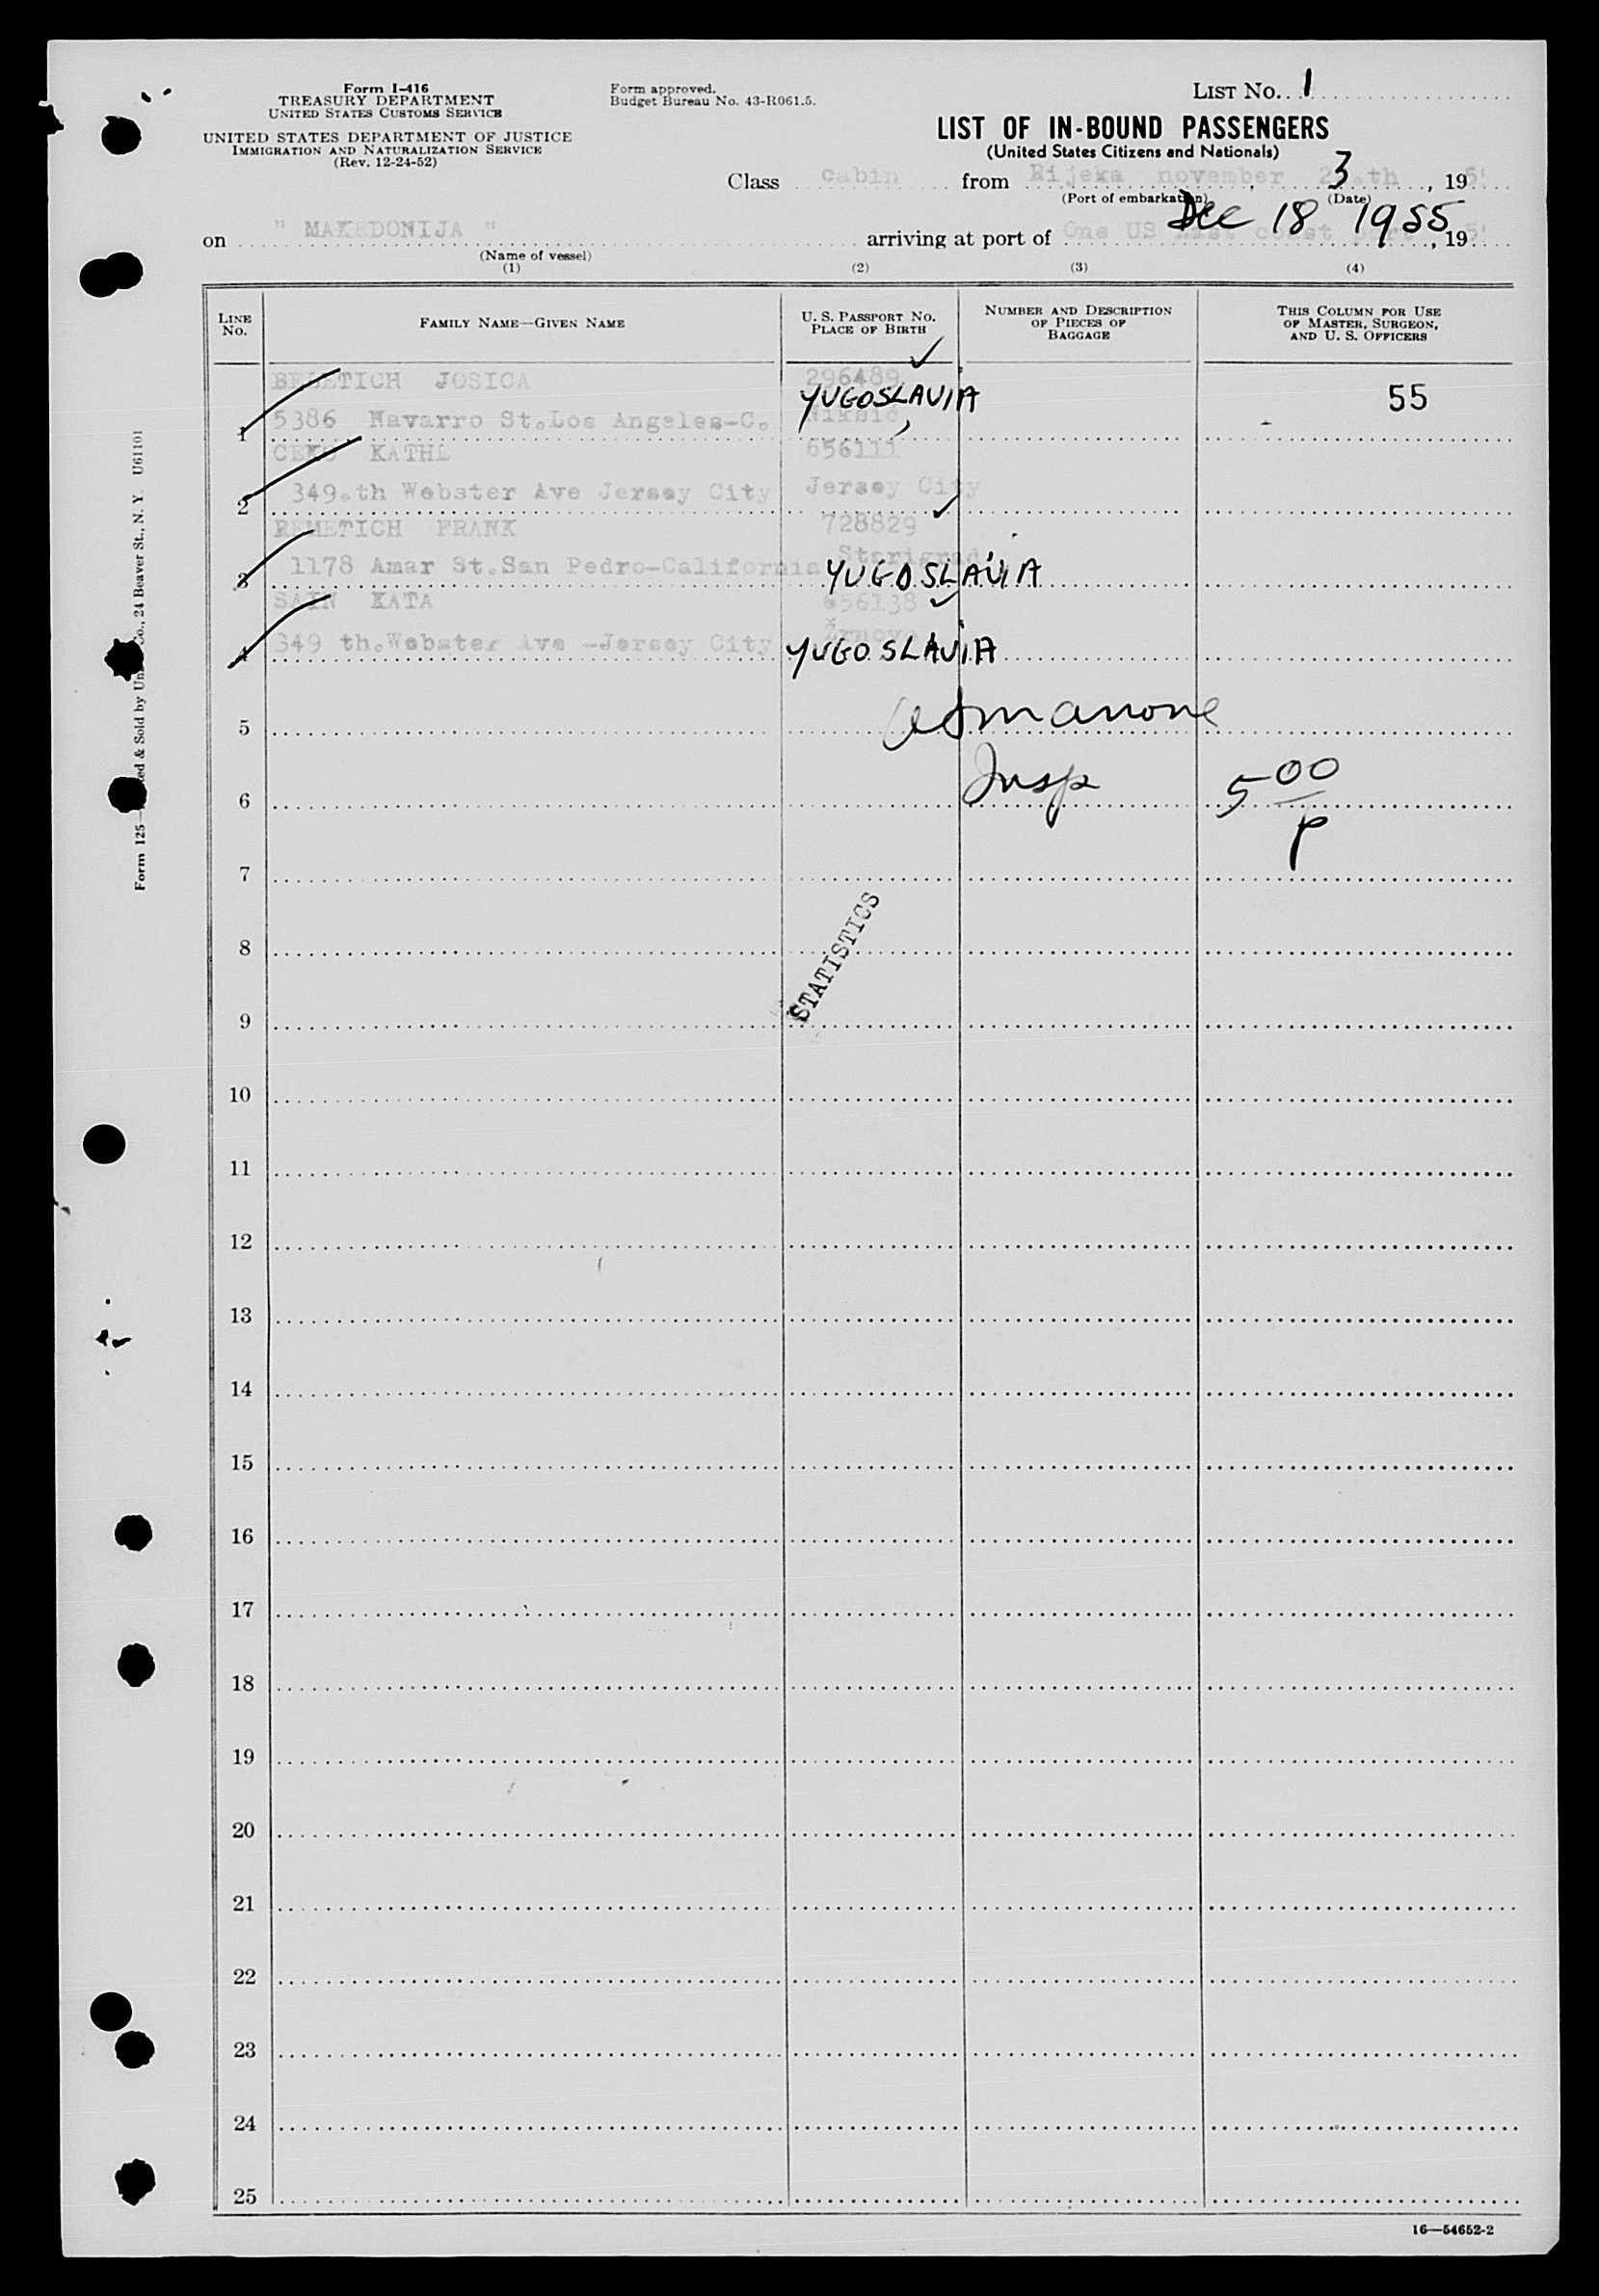 Form I-416
TREASURY DEPARTMENT
UNITED STATES CUSTOMS SERVICE
UNITED STATES DEPARTMENT OF JUSTICE
IMMIGRATION AND NATURALIZATION SERVICE
(Rev. 12-24-52)
Form approved.
Budget Bureau No. 43-R061.5.
LIST No. 1
LIST OF IN-BOUND PASSENGERS
(United States Citizens and Nationals)
Class cabin from Rijeka november 3, 195
(Port of embarkation) (Date)
Dec 18 1955
on " MAKEDONIJA " arriving at port of One US East coast port, 195
(Name of vessel)
(1) (2) (3) (4)
LINE No.
FAMILY NAME—GIVEN NAME
U. S. PASSPORT No. PLACE OF BIRTH
NUMBER AND DESCRIPTION OF PIECES OF BAGGAGE
THIS COLUMN FOR USE OF MASTER, SURGEON, AND U. S. OFFICERS
JOSICA 296489
YUGOSLAVIA 55
1 5386 Navarro St.Los Angeles-C.
KATHE 656111
2 349.th Webster Ave Jersey City Jersey City
REMETICH FRANK 728829
3 1178 Amar St.San Pedro-California Starigrad
YUGOSLAVIA
SAIN KATA 656138
4 349 th.Webster Ave -Jersey City
YUGOSLAVIA
5
Insp 5 00
6
P
7
STATISTICS
8
9
10
11
12
13
14
15
16
17
18
19
20
21
22
23
24
25
16—54652-2
Form 125
& Sold by
Co., 24 Beaver St., N. Y. U61101